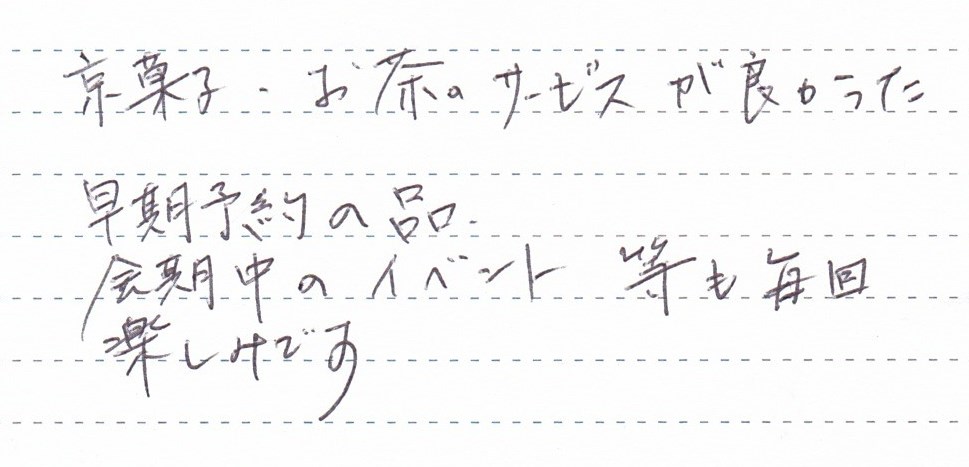 京菓子・お茶のサービスが良かった
早期予約の品.
会期中のイベント等も毎回
楽しみです